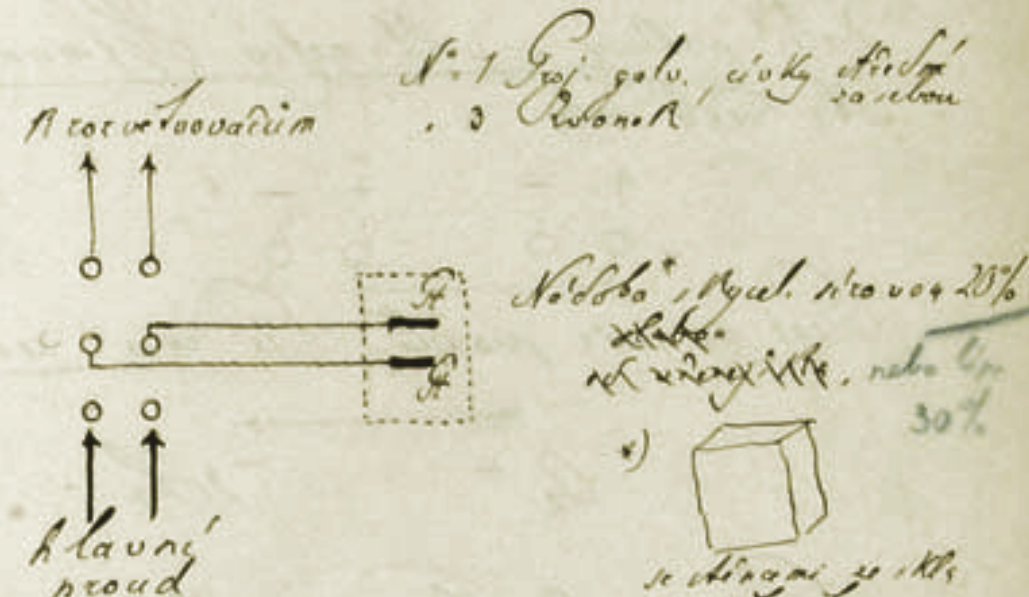 No 1 Proj. galv., cívky střední
za sebou
" 3 Zvonek
K rozvětvovačům
Pt
Pt
Nádoba* s kysel. sírovou 20%
nebo
30%
*)
hlavní
proud
se stěnami ze skla